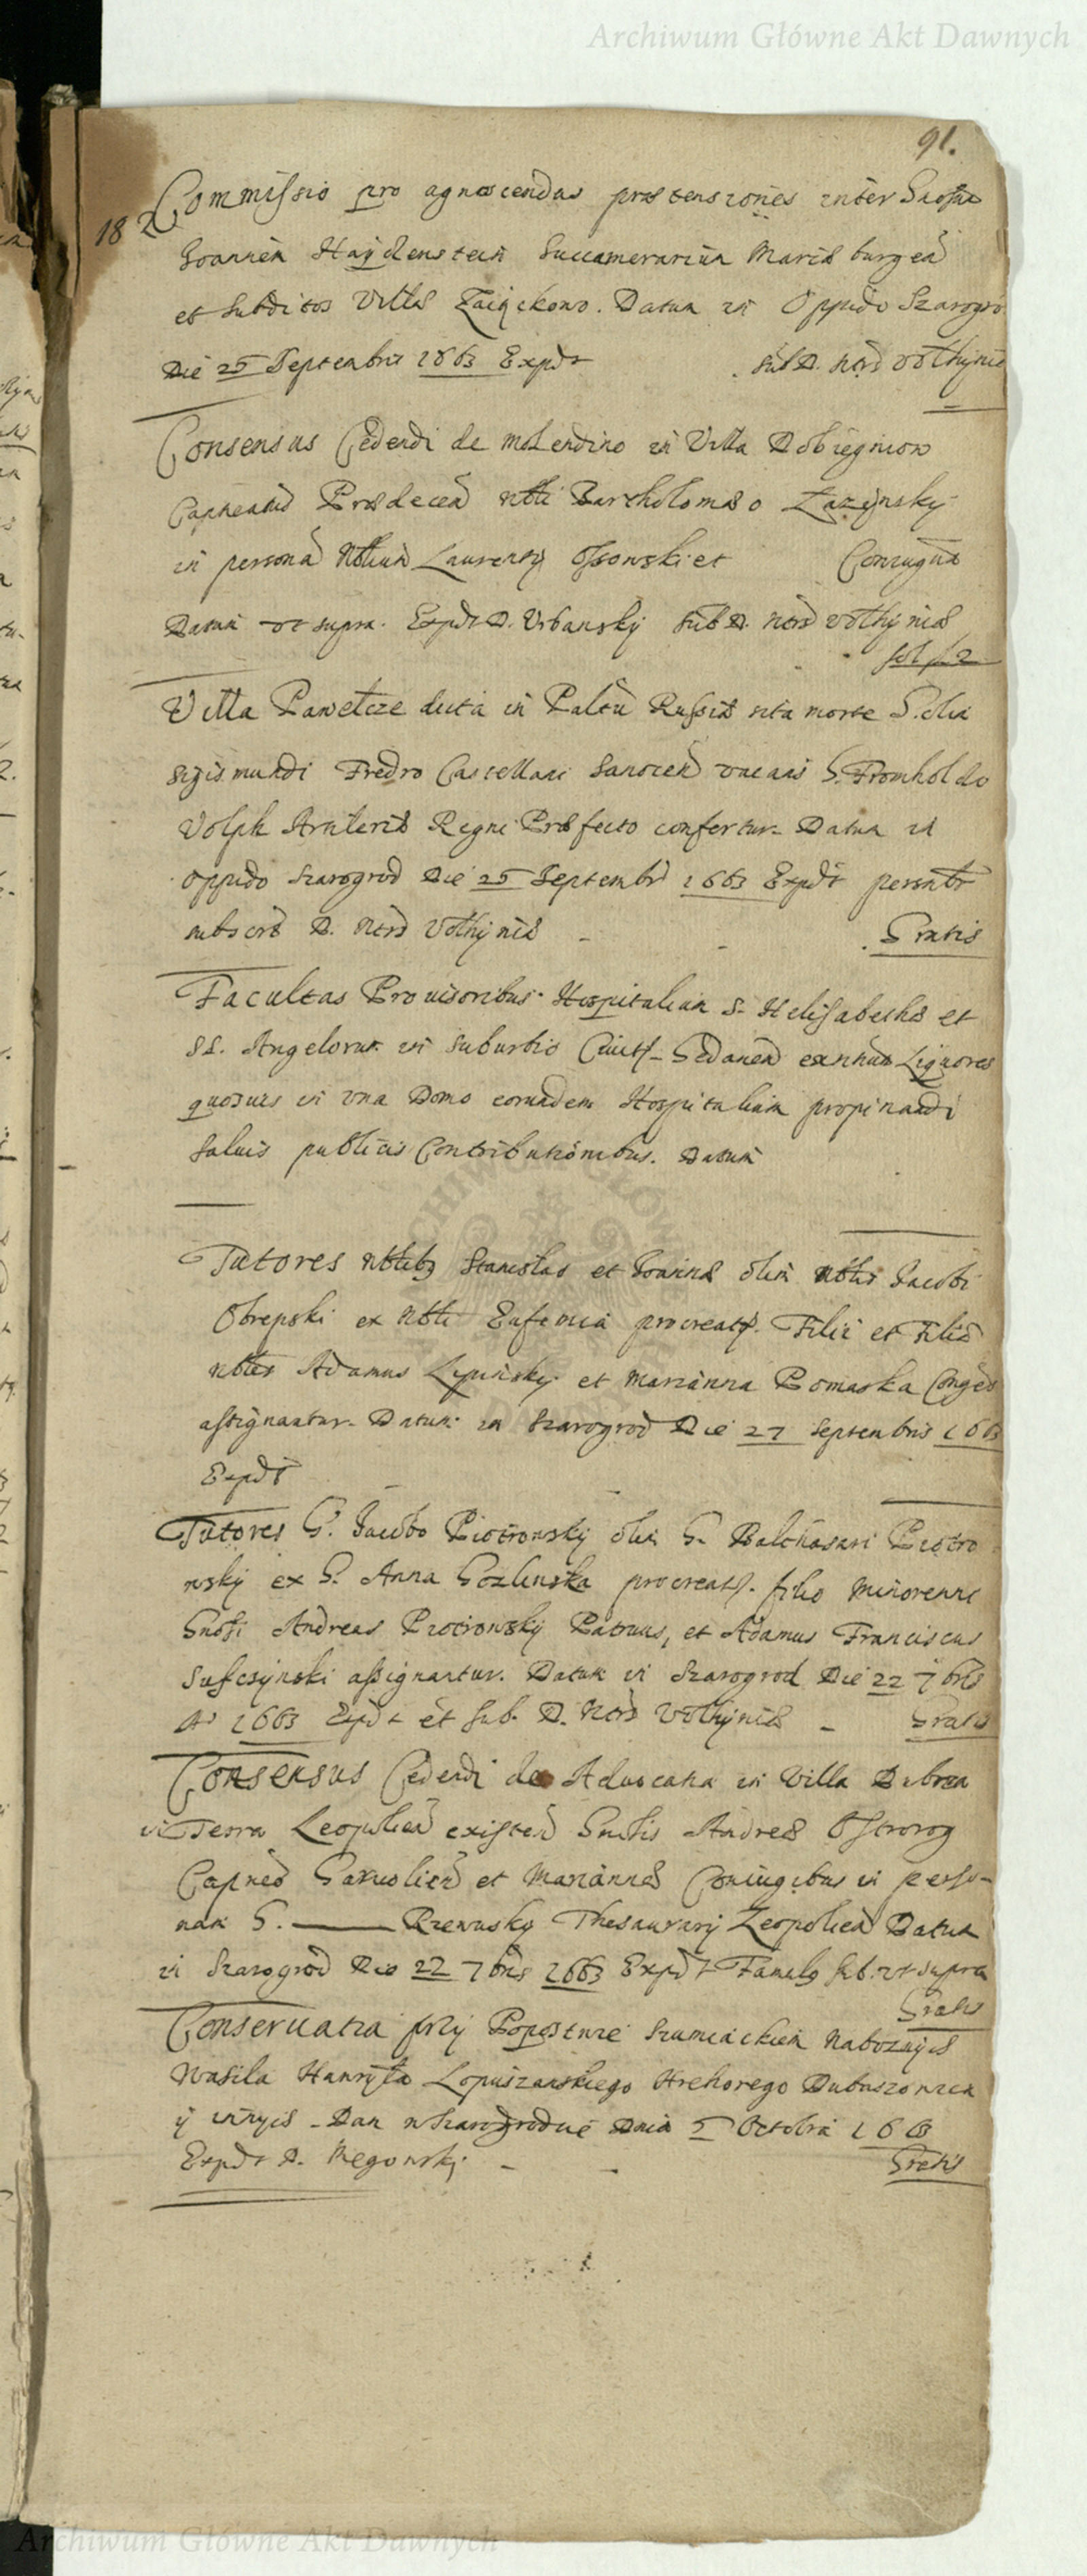 Archiwum Główne Akt Dawnych
91.
182
Commissio pro agnoscendas praetensiones inter Grosū
Joannem Haydenstein Succamerariūm Mariaeburgeñ
et subditos Villae Datum in Oppido Szarogro
Die 25 Septembris 1663 Expdt sub D. Nrīs Volhyniae
Consensus Cedendi de molendino in Villa Dobiegniow
Capneatus Praedeceñ Nbli Bartholomaeo
in personā Nbliūm Laurentij Ossowski et Coniugūm
Datum ut supra. Expdt D. Urbansky sub D. Nrīs Volhyniae
sol 2
Villa Pawelcze dicta in Paltū Russiae sita morte G. olim
Sigismundi Fredro Castellani Sanoceñ vacans G. Fromholdo
Volph Artileriae Regni Praefecto confertur. Datum in
oppido Szarogrod Die 25 Septembr 1663 Expdt
subscrib D. Nrīs Volhyniae - - Gratis
Facultas Prouisoribus Hospitalium S. Helisabethae et
SS. Angelorum in suburbio Ciuit. Gedaneñ Liquores
quosuis in una Domo eorundem Hospitalium propinandi
saluis publicis Contributionibus. Datum
Tutores Nblibq Stanislao et Joannae olim Nblis Jacobi
Obrepski ex Nbli Eufemia procreat. Filii et Filiae
Nbles Adamus Lipinsky et Marianna Pomaska Conges
assignantur. Datum in Szarogrod Die 27 Septembris 1663
Expdt
Tutores G. Jacobo Piotrowsky olim G. Balthasari Piotro
wsky ex G. Anna Gozlinska procreat. filio Minorenni
Gnosi Andreas Piotrowsky Patruus, et Adamus Franciscus
Sufczynski assignantur. Datum in Szarogrod Die 22 7bris
Ao 1663 Expdt et sub. D. Nrīs Volhyniae - Gratis
Consensus Cedendi de Aduocatia in Villa
in Terra Leopolieñ existeñ Gnosis Andreae Ostrorog
Capneo Garuolieñ et Mariannae Coniugibus in perso-
nam G. ——— Rzewusky Thesaurarij Leopolieñ Datum
in Szarogrod Die 22 7bris 1663 Expdt Sub. ut supra
Gratis
Conseruatia przy Popostwie Nabozny
Wasila Hawryła Lopuszanskiego Hrehorego
y innych - Dan w Szarogrodzie Dnia 5 Octobra 1663
Expdt D. - - Gratis
Archiwum Główne Akt Dawnych